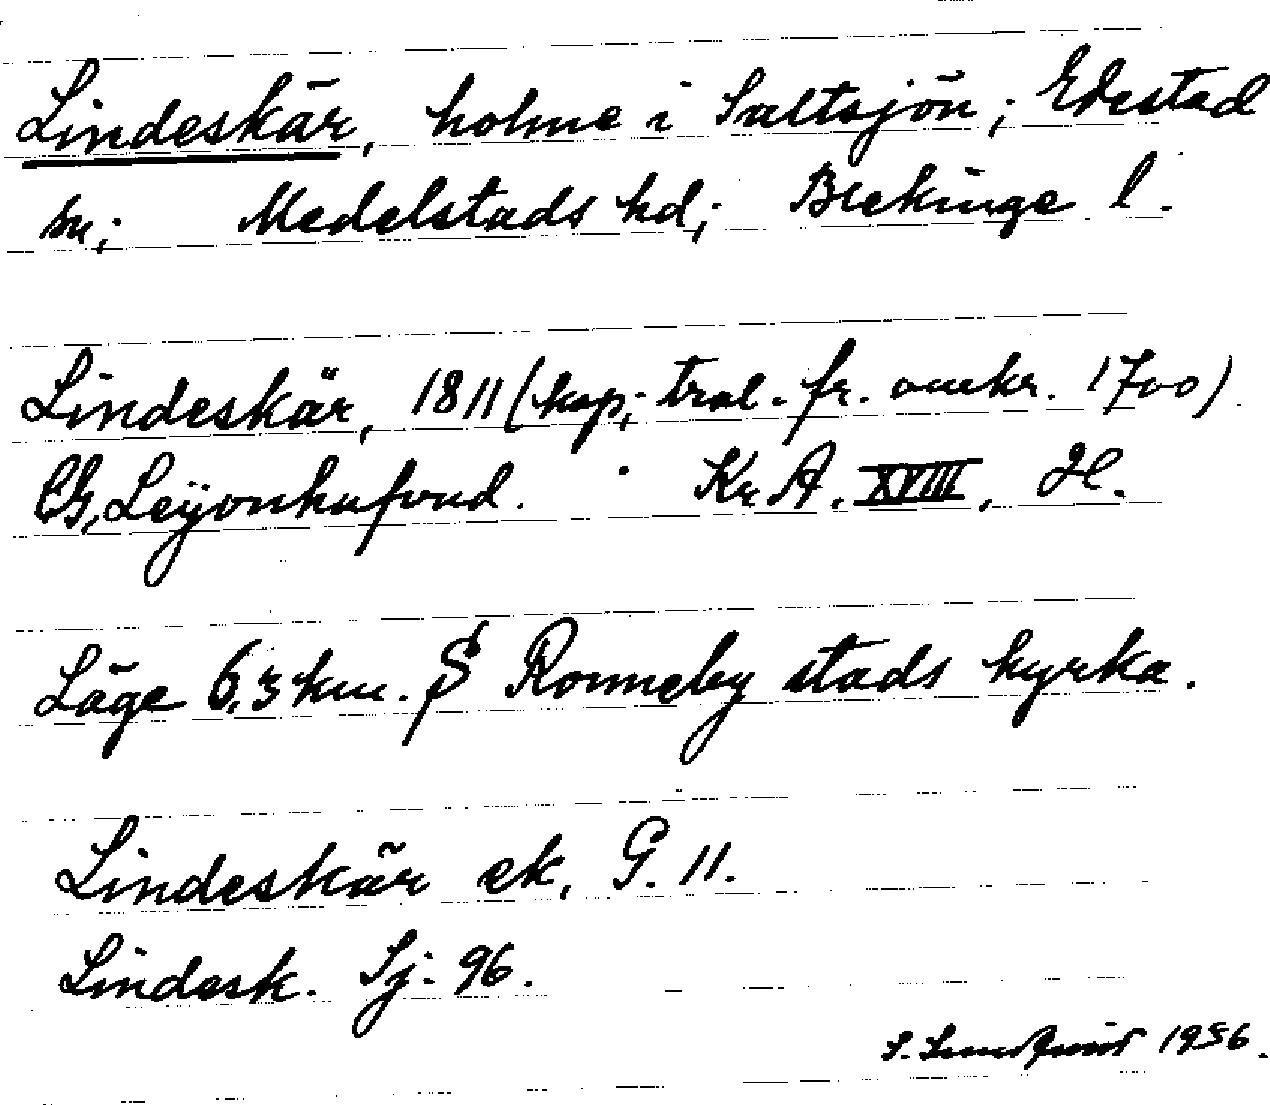 Lindeskär, holme i Saltsjön; Edestad
sn; Medelstads hd; Blekinge l.
Lindeskär, 1811 (kop; trol. fr. omkr. 1700).
CG, Leijonhufvud. Kr. A. XVIII, H.
Läge 6,3 km. S Ronneby stads kyrka.
Lindeskär ek, G. 11.
Lindesk. Sj: 96.
S. Sundqvist 1956.